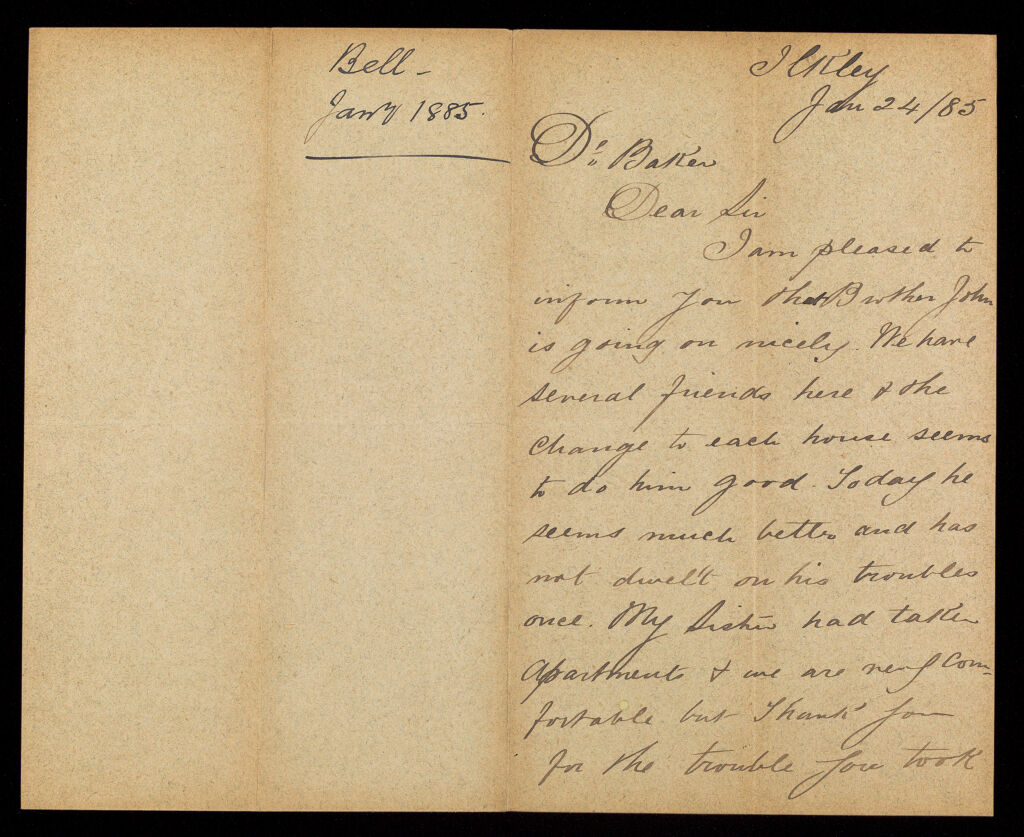 Bell -
Jany 1885.
Ilkley
Jan 24/85
Dr. Baker
Dear Sir
I am pleased to
inform you that Brother John
is going on nicely. We have
several friends here & the
change to each house seems
to do him good. Today he
seems much better and has
not dwel't on his troubles
once. My Sister had taken
apartments & we are very com-
fortable but Thank you
for the trouble you took